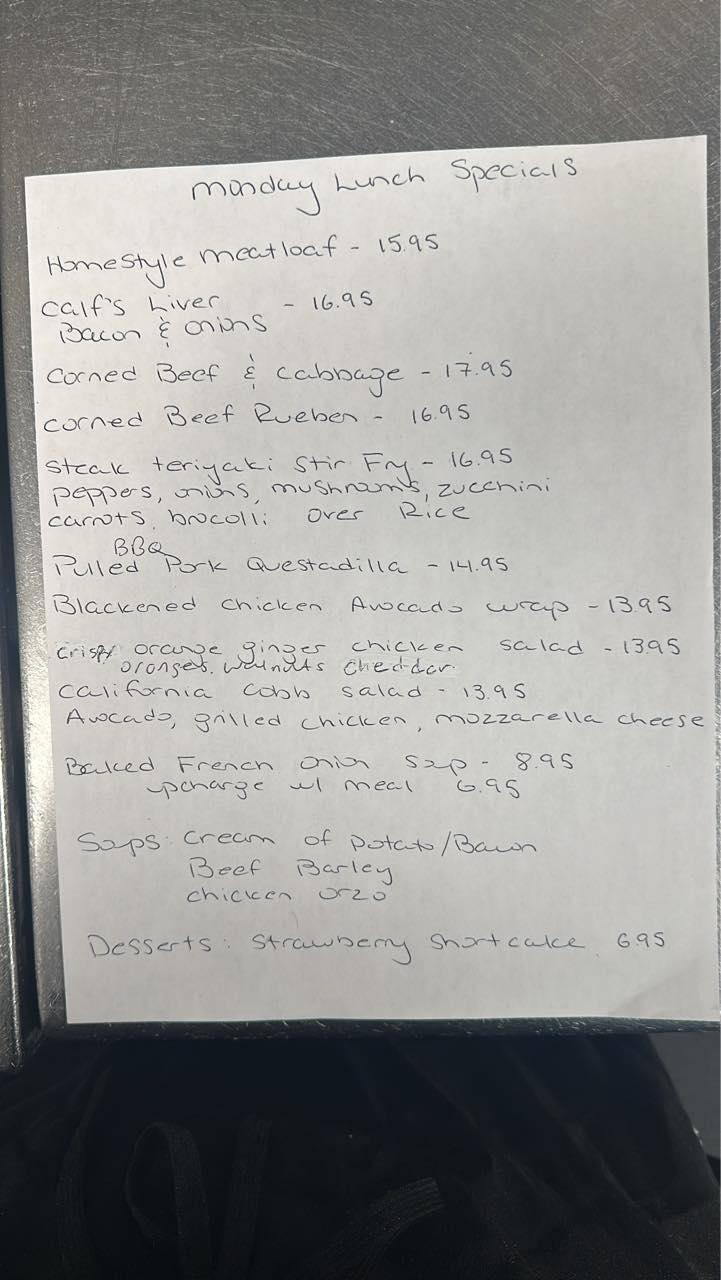 Monday Lunch Specials
Homestyle meatloaf - 15.95
Calf's Liver - 16.95
Bacon & onions
Corned Beef & cabbage - 17.95
Corned Beef Rueben - 16.95
Steak teriyaki Stir Fry - 16.95
peppers, onions, mushrooms, zucchini
carrots, brocolli over Rice
BBQ
Pulled Pork Questadilla - 14.95
Blackened chicken Avocado wrap - 13.95
crispy orange ginger chicken salad - 13.95
oranges, walnuts cheddar
California cobb salad - 13.95
Avocado, grilled chicken, mozzarella cheese
Baked French onion Soup - 8.95
upcharge w/ meal 6.95
Soups: Cream of Potato/Bacon
Beef Barley
chicken orzo
Desserts: Strawberry Shortcake 6.95